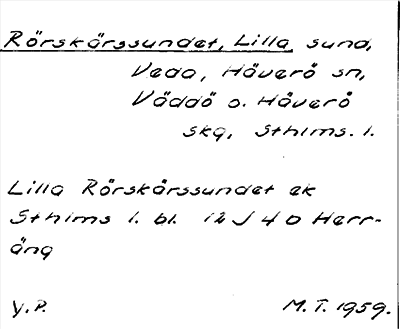 Rörskärssundet, Lilla, sund,
Veda, Häverö sn,
Väddö o. Häverö
skg, Sthlms. l.
Lilla Rörskärssundet ek
Sthlms l. bl. 12 J 4 D Herr-
äng
Y.P. M.T. 1959.